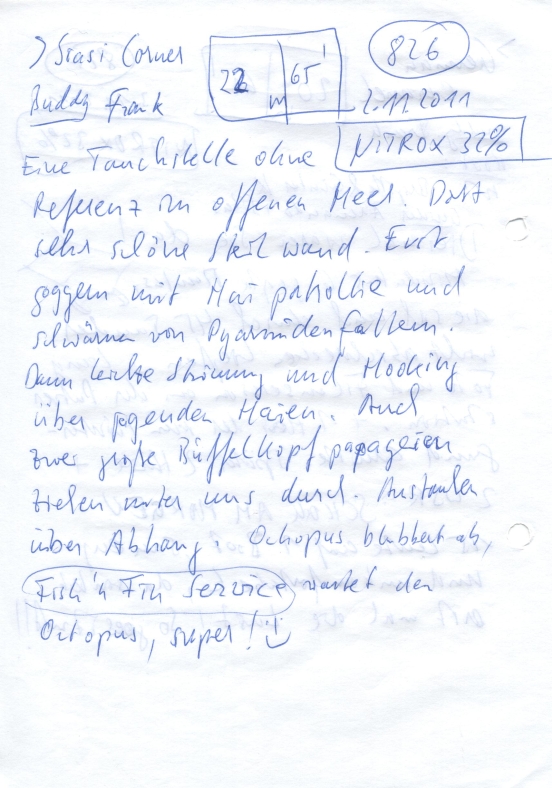 > Siasi Corner
22 m | 65'
826
Buddy Frank
2.11.2011
NITROX 32%
Eine Tauchstelle ohne
Referenz im offenen Meer. Dort
sehr schöne Steilwand. Erst
joggern mit Hai patrollie und
schwärmen von Pyramidenfaltern.
Dann leichte Strömung und Hooking
über jagenden Haien. Auch
zwei große Büffelkopfpapageien
ziehen unter uns durch. Austauchen
über Abhang. Octopus blubbert ab,
Fish'n Fin Service wartet den
Octopus, super!